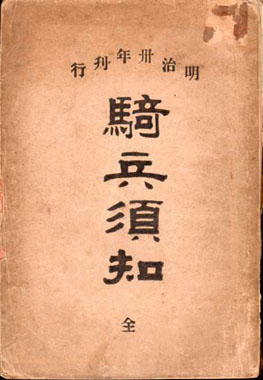 明治卅年刋行
騎兵須知
全